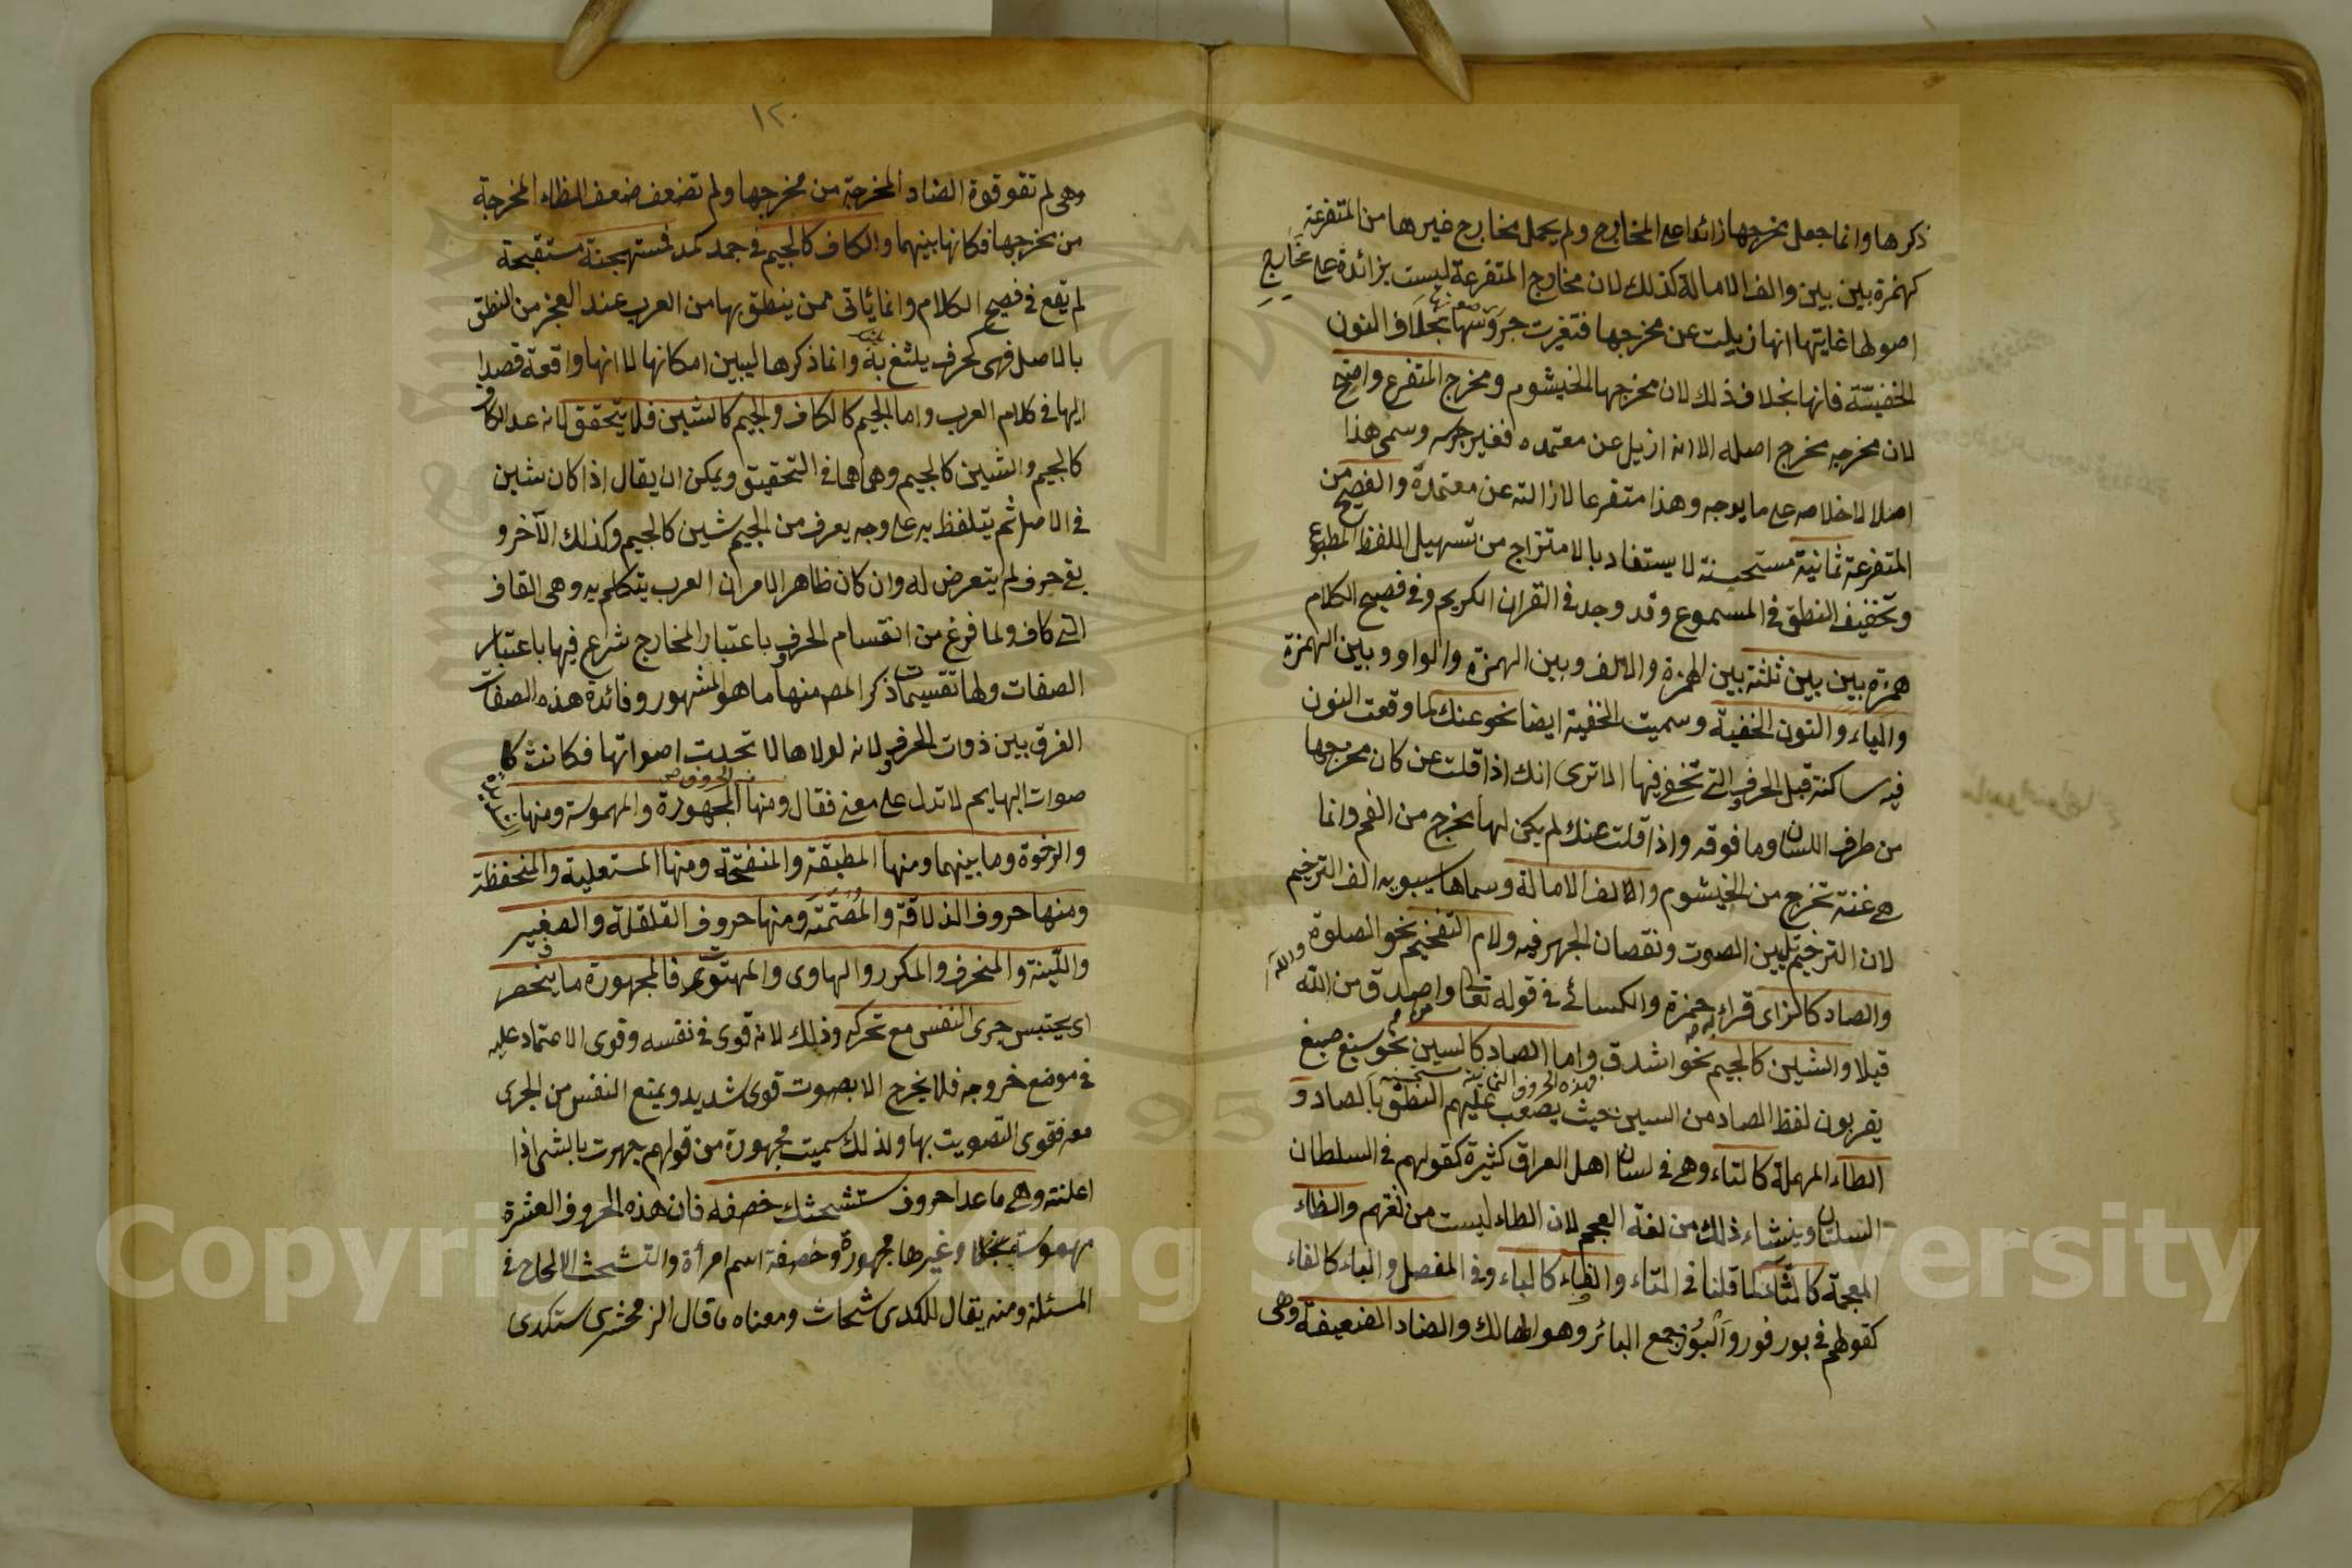 ذكرها وانما جعل مخرجها زائدا على المخارج ولم يجعل مخارج غيرها من المتفرعة
كهمزة بين بين والف الامالة كذلك لان مخارج المتفرعة ليست بزائدة على مخارج
اصولها غايتها انها ازيلت عن مخرجها فتغيرت جروسها بخلاف النون
الخفيتة فانها بخلاف ذلك لان مخرجها الخيشوم ومخرج المتفرع واضح
لان مخرجه مخرج اصله الا انه ازيل عن معتمده فغير جرسه وسمى هذا
اصلا لاخلاصه على ما يوجبه وهذا متفرعا لازالته عن معتمدة والفصيح من
المتفرعة ثمانية مستحسنة لا يستفاد بالامتزاج من تسهيل اللفظ المطبوع
وتخفيف النطق في المسموع وقد وجد في القران الكريم وفي فصيح الكلام
همزة بين بين ثلثة بين الهمزة والالف وبين الهمزة والواو وبين الهمزة
والياء والنون الخفية وسميت الخفية ايضا نحو عنك لما وقعت النون
فيه ساكنة قبل الحروف التى تخفى فيها الا ترى انك اذا قلت عن كان مخرجها
من طرف اللسان وما فوقه واذا قلت عنك لم يكن لها مخرج من الفم وانما
هي غنة تخرج من الخيشوم والالف الامالة وسماها سيبويه الف الترخيم
لان الترخيم تليين الصوت ونقصان الجهر فيه ولام التفخيم نحو الصلوة والله
والصاد كالزاى قراء حمزة والكسائى في قوله تعالى ومن اصدق من الله
قيلا والشين كالجيم نحو اشدق واما الصاد كالسين نحو سبغ صبغ
فهذه الحروف الثمانية مستحسنة
يقربون لفظ الصاد من السين حيث يصعب عليهم النطق بالصاد و
الطاء المهملة كالتاء وهي في لسان اهل العراق كثيرة كقولهم في السلطان
السلتان وينشاء ذلك من لغة العجم لان الطاء ليست من لغتهم والظاء
المعجمة كالثاء لما قلنا في التاء والفاء كالباء وفي المفصل والباء كالفاء
كقولهم في بور فور والبور جمع البائر وهو الهالك والضاد الضعيفة وهى
١٢٠
وهى لم تقو قوة الضاد المخرجة من مخرجها ولم تضعف ضعف الظاء المخرجة
من مخرجها فكانها بينهما والكاف كالجيم في جمد كمد فمستهجنة مستقبحة
لم يقع في فصيح الكلام وانما يأتى ممن ينطق بها من العرب عند العجز من النطق
بالاصل فهى كحرف يلثغ به وانما ذكرها ليبين امكانها لا انها واقعة قصدا
اليها في كلام العرب واما الجيم كالكاف والجيم كالشين فلا يتحقق لانه عد الكاف
كالجيم والشين كالجيم وهما هما في التحقيق ويمكن ان يقال اذا كان شين
في الاصل ثم يتلفظ به على وجه يعرف من الجيم شين كالجيم وكذلك الآخر و
بقى حرف لم يتعرض له وان كان ظاهر الامر ان العرب يتكلم به وهى القاف
التى كاف ولما فرغ من انقسام الحروف باعتبار المخارج شرع فيها باعتبار
الصفات ولها تقسيمات ذكر المص منها ما هو المشهور وفائدة هذه الصفات
الفرق بين ذوات الحروف لانه لولاها لا تحدت اصواتها فكانت كا
صوات البهايم لا تدل على معنى فقال ومنها المجهورة والمهموسة ومنها
والرخوة وما بينهما ومنها المطبقة والمنفتحة ومنها المستعلية والمنخفظة
ومنها حروف الذلاقة والمصمتة ومنها حروف القلقلة والصفير
واللينة والمنحرف والمكرر والهاوى والمهتوت فالمجهورة ما ينحصر
اى يحتبس جرى النفس مع تحركه وذلك لانه قوى في نفسه وقوى الاعتماد عليه
في موضع خروجه فلا يخرج الا بصوت قوى شديد ويمنع النفس من الجرى
معه فقوى التصويت بها ولذلك سميت مجهورة من قولهم جهرت بالشى اذا
اعلنته وهى ما عدا حروف ستشحثك خصفه فان هذه الحروف العشرة
مهموسة وغيرها مجهورة وخصفة اسم امرأة والتشحث الالحاح في
المسئلة ومنه يقال للمكدى شحاث ومعناه ما قال الزمخشرى ستكدى
Copyright © King Saud University
1957